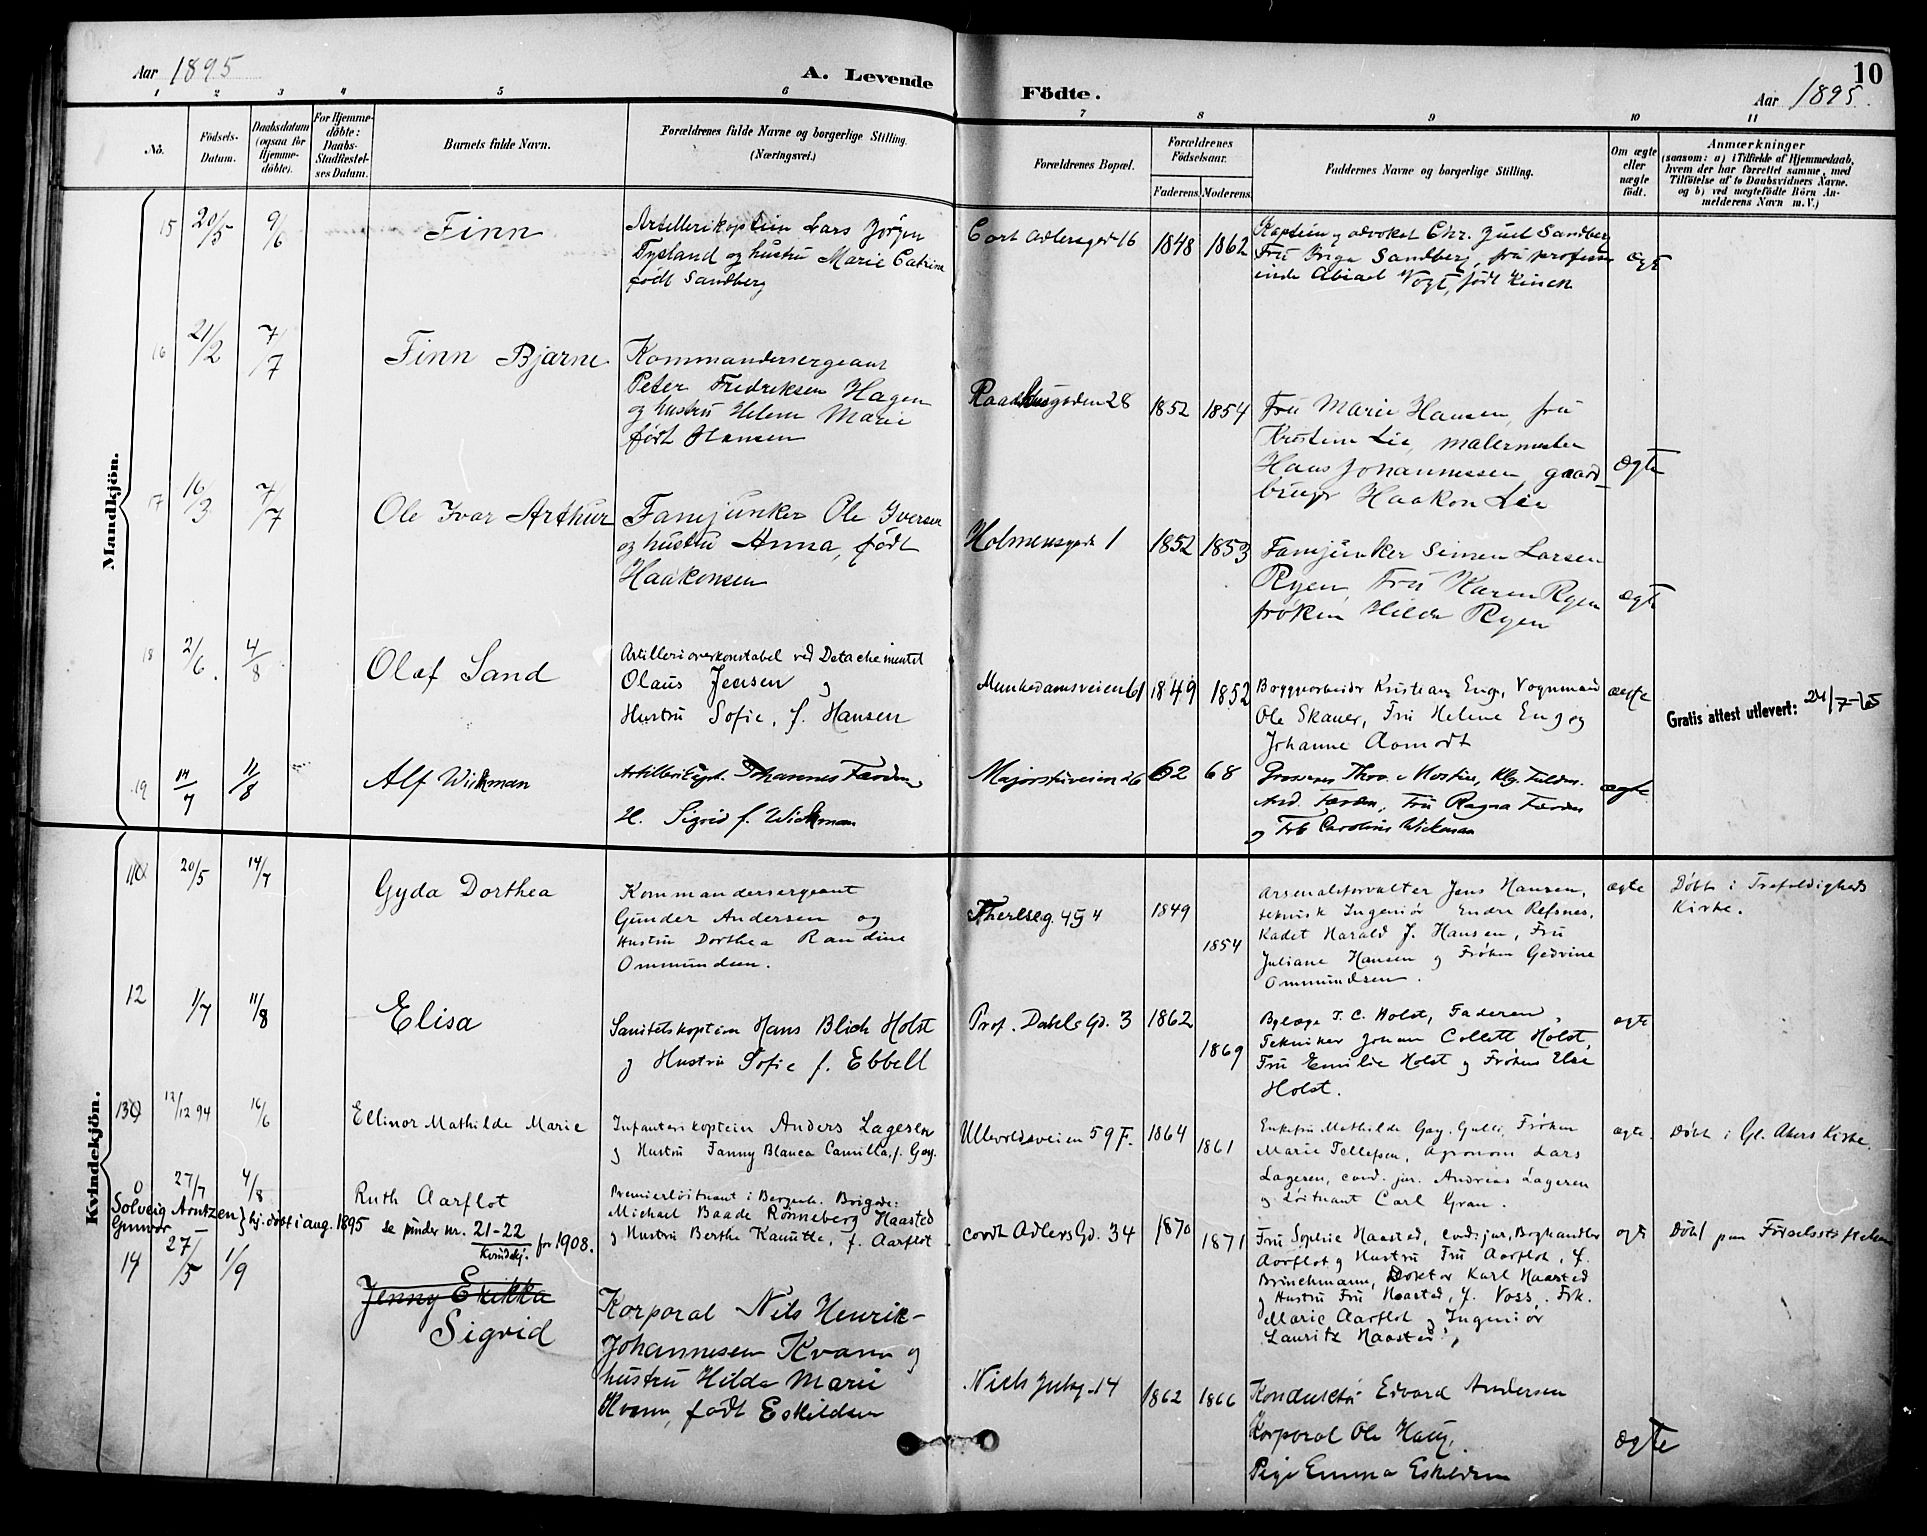 Aar 1895
A. Levende
Födte.
Aar 1895.
10
1 2 3 4 5 6 7 8 9 10 11
No.
Födsels-
Datum.
Daabsdatum
(ogsaa for
Hjemme-
döbte).
For Hjemme-
döbte:
Daabs-
Stadfæstel-
ses Datum.
Barnets fulde Navn.
Forældrenes fulde Navne og borgerlige Stilling.
(Næringsvei.)
Forældrenes Bopæl.
Forældrenes
Födselsaar.
Faderens. Moderens.
Faddernes Navne og borgerlige Stilling.
Om ægte
eller
uægte
födt.
Anmærkninger
(saasom: a) i Tilfælde af Hjemmedaab,
hvem der har forrettet samme, med
Tilföielse af to Daabsvidners Navne.
og b) ved uægtefödte Börn An-
melderens Navn m. V.)
Mandkjön.
15 20/5 9/6 Finn
Artillerikaptein Lars Jörgen
Tysland og hustru Marie Catrine
født Sandberg
Cort Adlersgd 16 1848 1862
Kaptein og advokat Chr. Juel Sandberg
Fru Inga Sandberg, fru professor
inde Abiael Vogt, født Kinck
ægt
16 21/2 7/7 Finn Bjarne
Kommandersergeant
Peter Fredriksen Hagen
og hustru Helene Marie
født Hansen
Raadhusgaden 28 1852 1854
Fru Marie Hansen, fru
Kristine Lie, malermester
Hans Johannessen, gaard-
bruger Haakon Lie
ægte
17 16/3 7/7 Ole Ivar Arthur
Fanejunker Ole Iversen
og hustru Anna, født
Haakensen
Holmensgade 1 1852 1853
Fanejunker Simen Larsen
Ryen, Fru Karen Ryen
frøken Hilda Ryen
ægte
18 2/6. 4/8 Olaf Sand
Artillerioverkonstabel ved Detachementet
Olaus Jensen og
Hustru Sofie, f. Hansen
Munkedamsveien 61 1849 1852
Byggearbeider Kristian Eng, Vognmand
Ole Skauer, Fru Helene Eng og
Johanne Aamodt
ægte
Gratis attest utlevert: 24/7-65
19 14/7 11/8 Alf Wickman
Artillerikapt. Johannes Færden
H. Sigrid f. Wickman
Majorstuveien 26 62 68
And. Færden, Fru Ragna Færden
og Frk Caroline Wickman
ægte
Kvindekjön.
11 20/5 14/7 Gyda Dorthea
Kommandersergeant
Gunder Andersen og
Hustru Dorthea Randine
Ommundsen.
1849
1854
Arsenalsforvalter Jens Hansen,
teknisk Ingeniør Endre Refsnes,
Kadet Harald J. Hansen, Fru
Juliane Hansen og Frøken Gedvine
Ommundsen.
ægte
Döbt i Trefoldigheds
Kirke.
12 1/7 11/8 Elisa
Sanitetskaptein Hans Blich Holst
og Hustru Sofie f. Ebbell
Prof. Dahls Gd. 3 1862
1869
T. C. Holst, Faderen,
Tekniker Johan Collett Holst,
Fru Emilie Holst og Frøken Elise
Holst.
ægte
13 12/12 94 16/6 Ellinor Mathilde Marie
Infanterikaptein Anders Lageren
og Hustru Fanny Blanca Camilla, f. Gay.
Ullevoldsveien 59 F. 1864
1861
Enkefru Mathilde Gay, Frøken
Marie Tellefsen, Agronom Lars
Lageren, cand. jur. Andreas Lageren
og Löitnant Carl Gran.
ægte
Döbt i Gl. Akers Kirke
0 27/7 4/8 Ruth Aarflot
Premierlöitnant i Bergenh. Brigade:
Michael Baade Rønneberg Haasted
og Hustru Berthe Kanutte, f. Aarflot
Cordt Adlers Gd. 34 1870
1871
Fru Sophie Haasted, cand. jur, Boghandler
Aarflot og Hustru Fru Aarflot, f.
Brinchmann, Doktor Karl Haasted
og Hustru Fru Haasted, f. Voss. Frk.
Marie Aarflot og Ingeniør
Lauritz Haasted.
ægte
Döbt paa Födselsstiftelsen
Solveig Arntzen } hj. døbt i aug. 1895 se under nr. 21-22 Kvindekj. for 1908.
Gunvor
14 27/5 1/9 Jenny Erikka
Sigrid
Korporal Nils Henrik
Johannesen Kvam og
hustru Hilda Marie
Kvam, født Eskildsen
Niels Juelsg. 14 1862 1866
Konduktør Edvard Andersen
Korporal Ole Haug,
Pige Emma Eskildsen
ægte